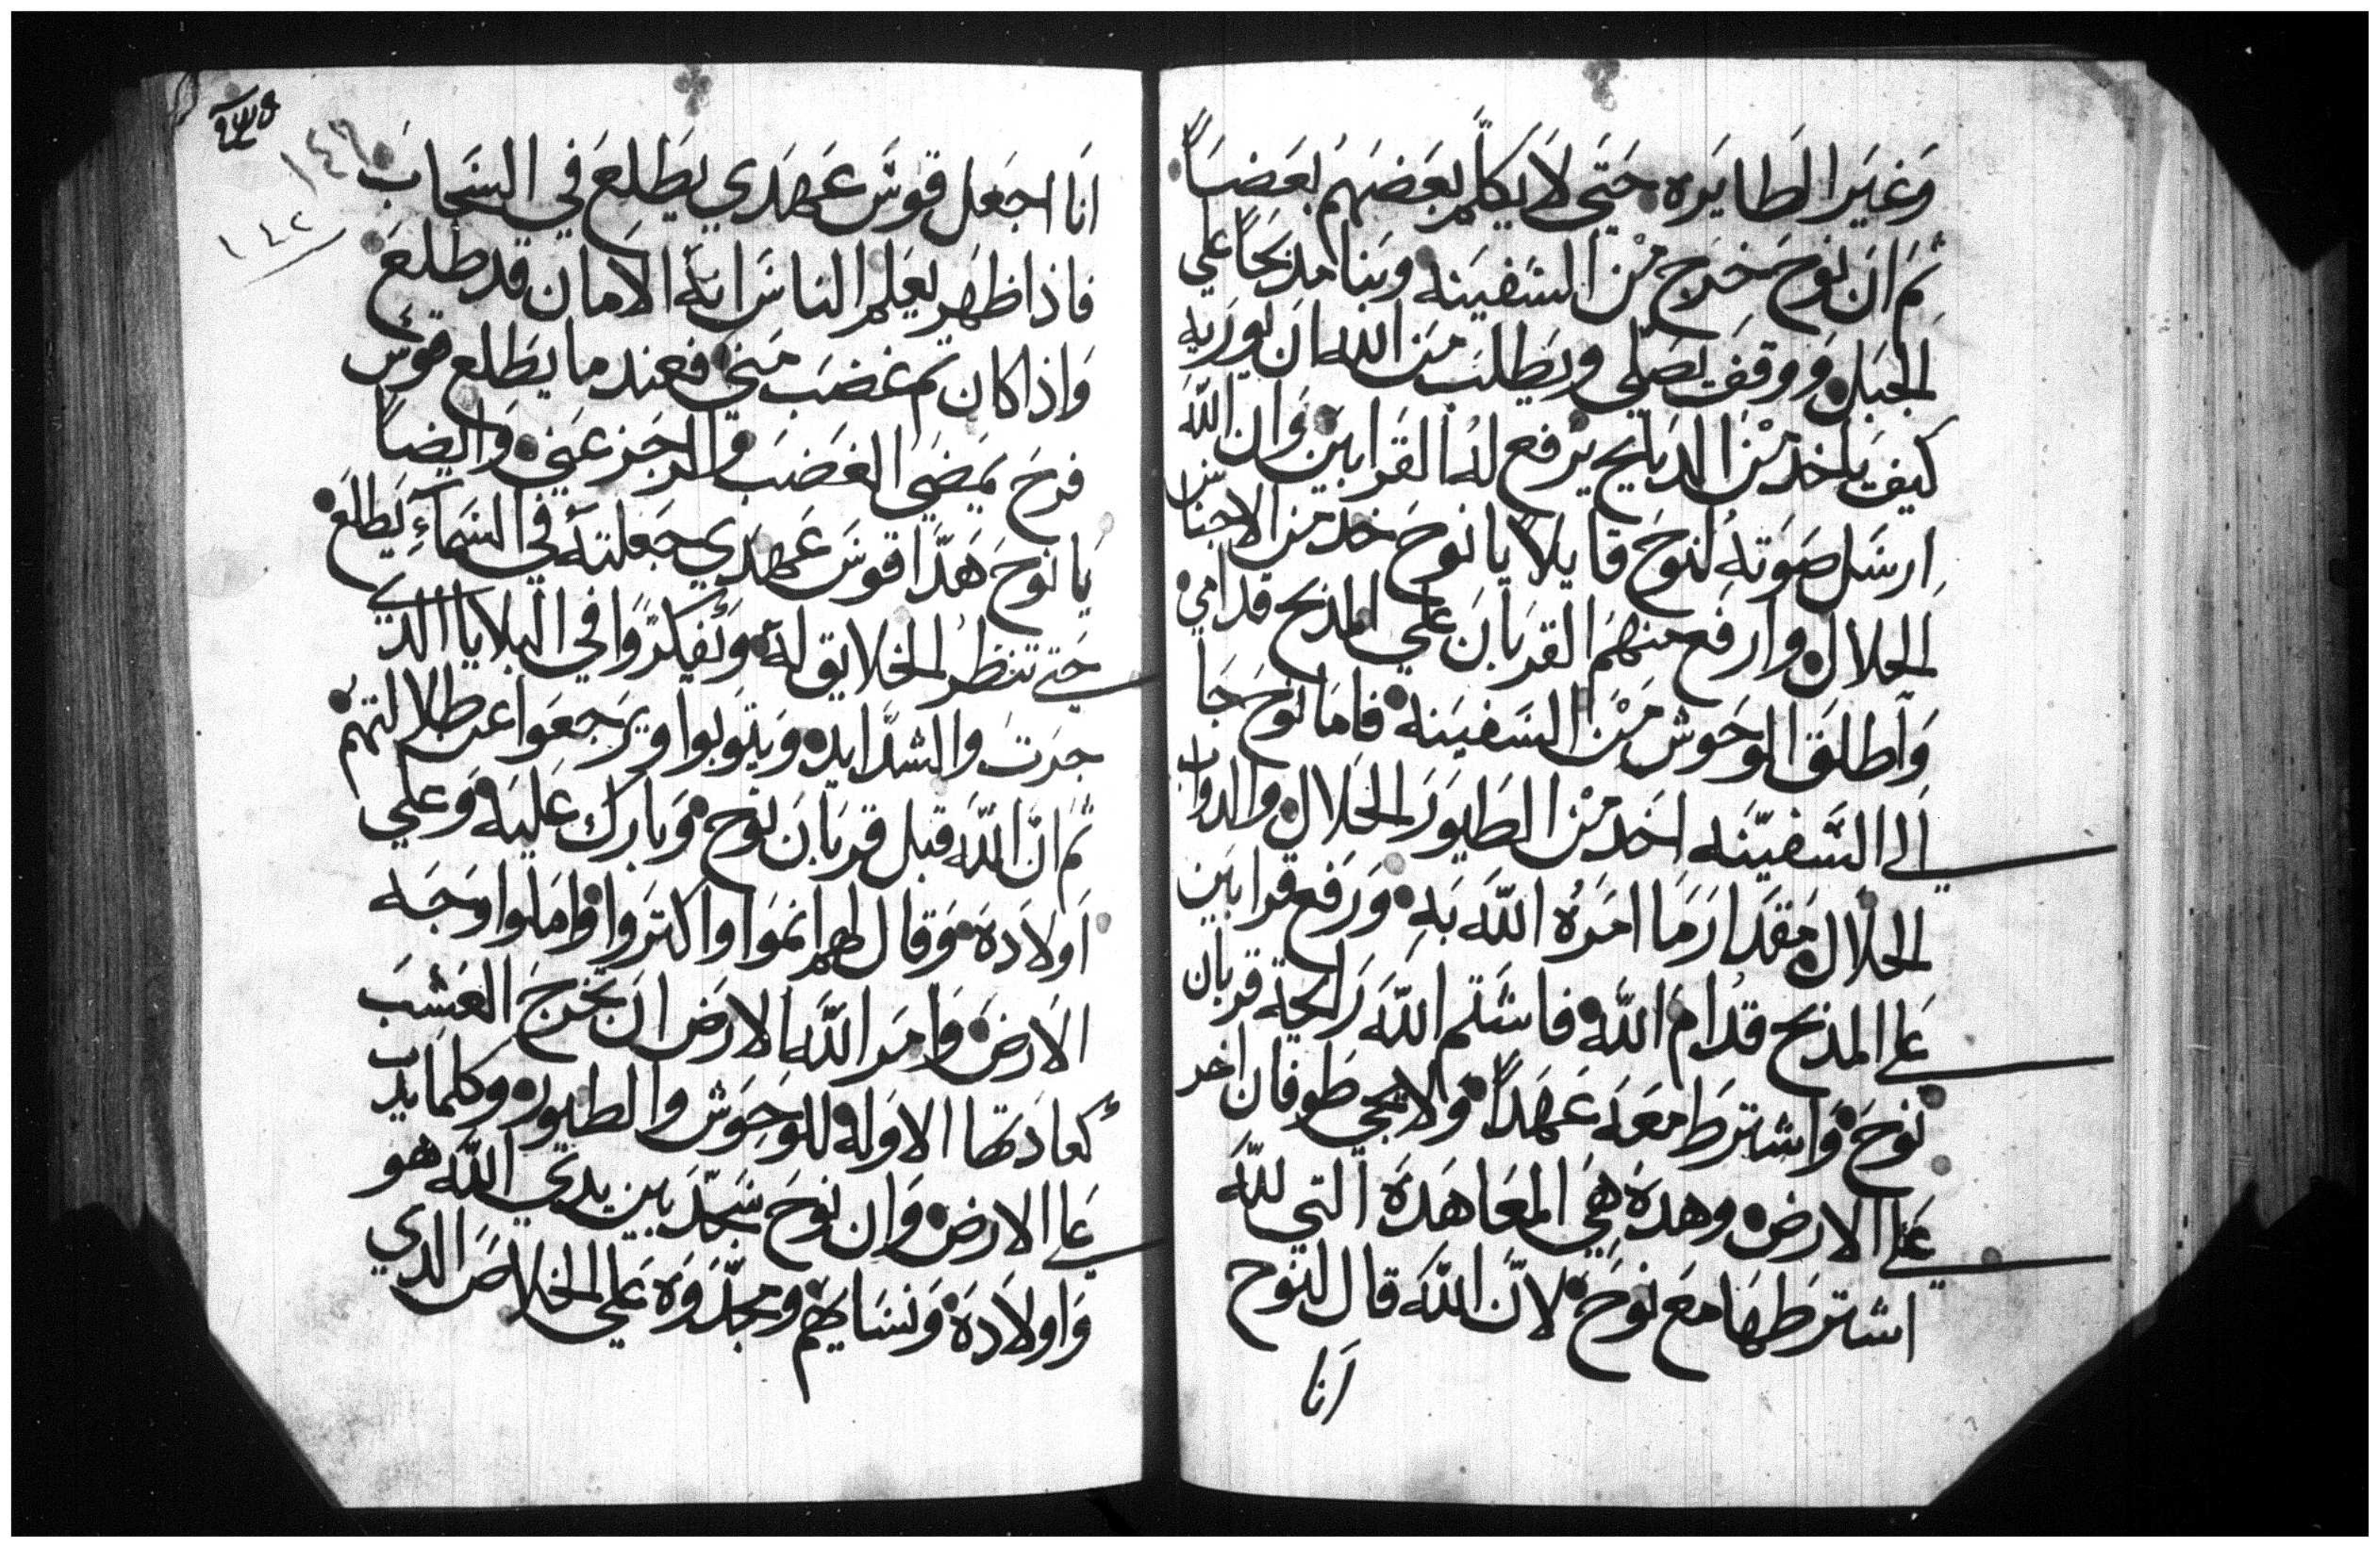 وَغيَر الطايَره حَتَى لاَ يكلمَّ بعَضهَمُ بعَضاً
ثمَ انَ نوَحَ خَرج مْن السَفينَه وبَنا مدبَحاً علي
الجبَل وَوقفَ يصَلي ويَطلَب مَن الله انَ يورَيه
كيفَ ياخد مْن الدبايح يرْفع لهُ القرَابيَن وَان اللهَ
ارسَل صَوَتهُ لنوَحَ قايلاً يا نوحَ خد من الاجناس
الحلال وارفَع منهمَ القربَانَ علَي المدبح قدامي
وَاطلقَ الوحَوش مَن السَفينَه فامَا نوحَ جَا
الي السَّفيّنَه اخَد مْن الطَيوَرَ الحَلال والدواب
الحَلال مَقدَارَ مَا امَرهُ اللهَ بَهِ وَرَفع قرابيَن
علي المدبح قدُامَ اللهَ فاشَتم اللهَ رَايحَة قربان
نوَحَ وَاشترَطَ معَهَ عَهَداً وَلا يجَي طوَفان اخر
عَلي الارضَ وهدهَ هيَ المعَاهَدَه التي للهَ
اشترَطَهَا معَ نوحَ لانَّ اللهَ قال لنوح
اَنا
١٤٢
انَا اجعَل قوسَّ عَهدَي يطَلعَ في السَحابَ
فاذا ظهَر يعَلم الناسَ انهَّ الامان قد طلعَ
وَاذا كان تم غضبَ مَني فعند ما يطَلع قوسَ
فرحَ يمَضَي الغَضبَ والرجَز عَني وَايضاً
يَا نوحَ هَدّا قوسَ عَهدَي جَعلتهَ في السَمآءِ يَطلعَ
حَتي تنظرُ الخلايق لهَ وَيفكرَّوا في البلايا الدي
جرَتَ والشدَّايد ويَتوَبوا ويرَجعَوا عن طلالتهمَ
ثمَ انَّ اللّهَ قبل قربَانَ نوحَ وَبارَك علَيهَ وَعلي
اوَلاَدهَ وَقال لهم انمَوا واكترَوا وَامَلوا وَجَه
الارَضَ وَامرَ اللّهَ الارَضَ انَ تخرجَ العَشبَ
كعادَتها الاوَله للوَحوَش والطيور وكلما يدب
عَلي الارض وَان نوحَ سَجدَّ بين يدي اللّهَ هو
وَاولاَدهَ وَنسَايهمَ ومجدَّوَه عَلي الخلاصَ الدي